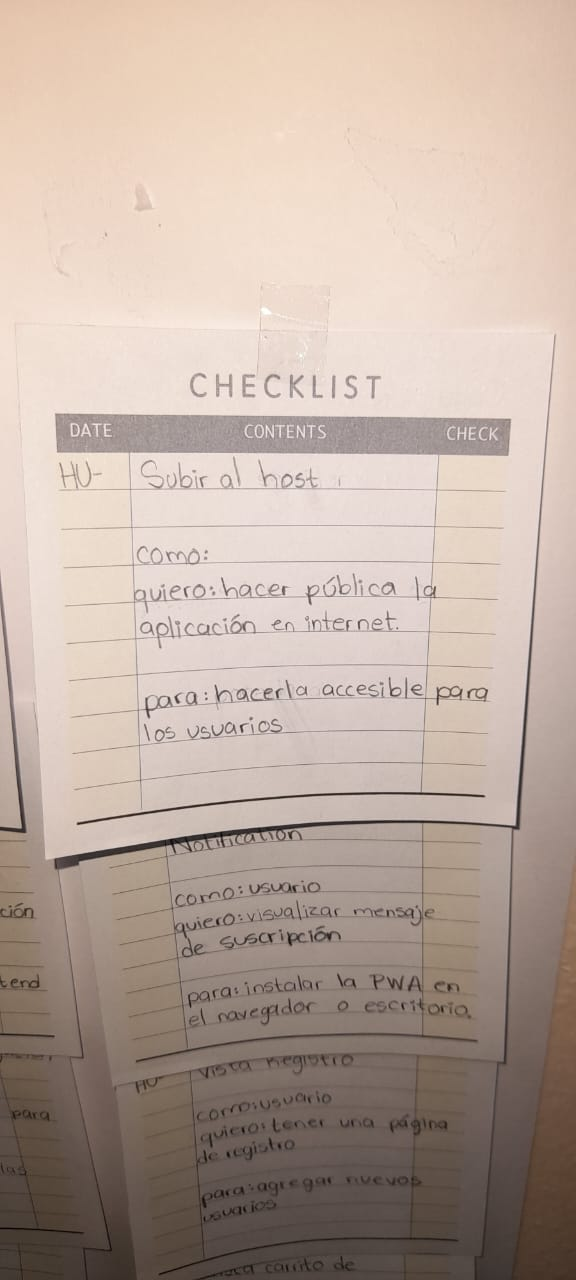 CHECKLIST
DATE CONTENTS CHECK
HU- Subir al host
como:
quiero: hacer pública la
aplicación en internet.
para: hacerla accesible para
los usuarios
Notification
como: usuario
quiero: visualizar mensaje
de suscripción
para: instalar la PWA en
el navegador o escritorio.
HU- Vista Registro
como: usuario
quiero: tener una página
de registro
para: agregar nuevos
usuarios
carrito de
ción
tend
para
las